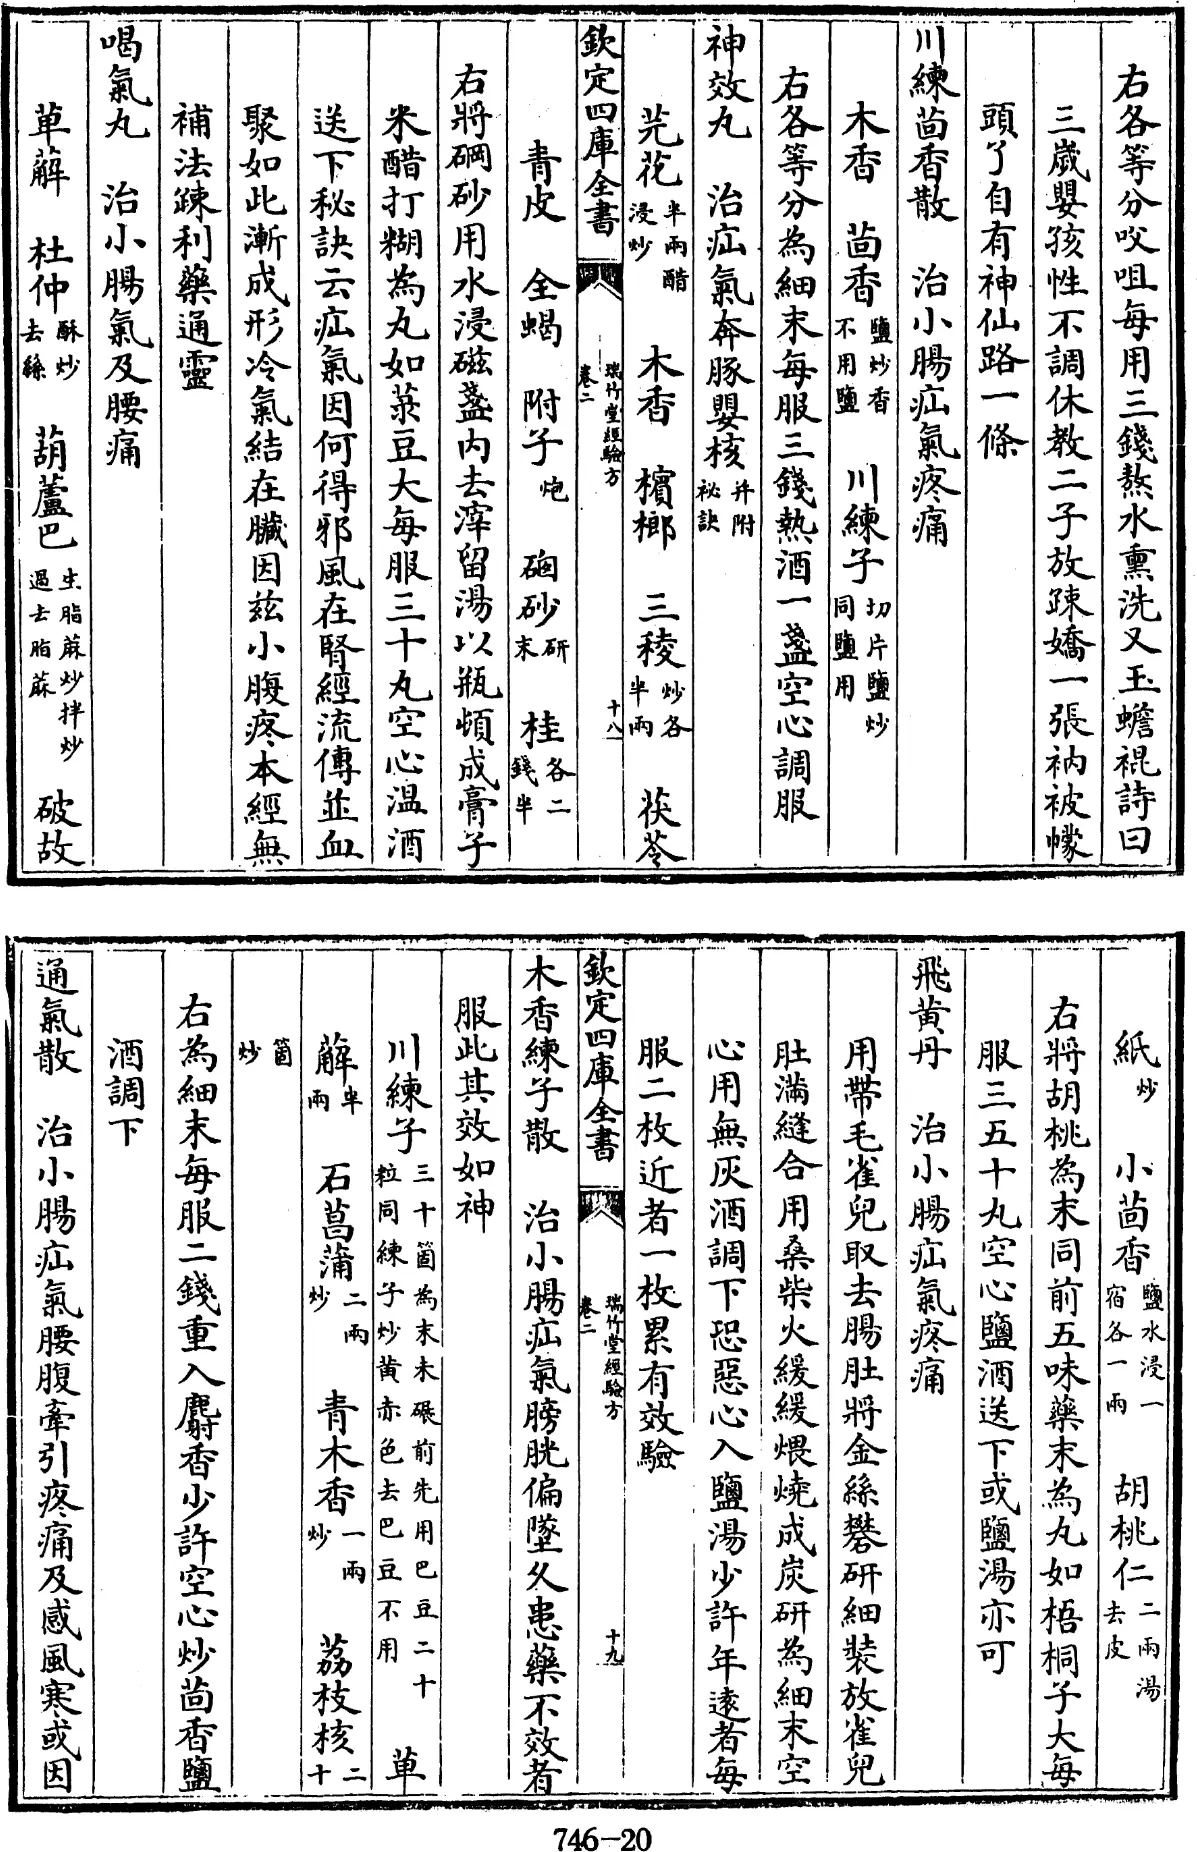 右各等分㕮咀每用三錢熬水熏洗又玉蟾裩詩曰
三歲嬰孩性不調休教二子放踈嬌一張衲被幪
頭了自有神仙路一條
川練茴香散　治小腸疝氣疼痛
木香　茴香鹽炒香不用鹽　川練子切片鹽炒同鹽用
右各等分為細末每服三錢熱酒一盞空心調服
神效丸　治疝氣奔豚嬰核并附祕訣
芫花半兩醋浸炒　木香　檳榔　三稜炒各半兩　茯苓
欽定四庫全書　瑞竹堂經驗方卷二　十八
青皮　全蝎　附子炮　硇砂研末　桂各二錢半
右將硇砂用水浸磁盞內去滓留湯以瓶頓成膏子
米醋打糊為丸如菉豆大每服三十丸空心溫酒
送下秘訣云疝氣因何得邪風在腎經流傳並血
聚如此漸成形冷氣結在臟因兹小腹疼本經無
補法踈利藥通靈
喝氣丸　治小腸氣及腰痛
萆薢　杜仲酥炒去絲　葫蘆巴生脂蔴炒拌炒過去脂蔴　破故
紙炒　小茴香鹽水浸一宿各一兩　胡桃仁二兩湯去皮
右將胡桃為末同前五味藥末為丸如梧桐子大每
服三五十丸空心鹽酒送下或鹽湯亦可
飛黄丹　治小腸疝氣疼痛
用帶毛雀兒取去腸肚將金絲礬研細裝放雀兒
肚滿縫合用桑柴火緩緩煨燒成炭研為細末空
心用無灰酒調下恐惡心入鹽湯少許年遠者每
服二枚近者一枚累有效驗
欽定四庫全書　瑞竹堂經驗方卷二　十九
木香練子散　治小腸疝氣膀胱偏墜久患藥不效者
服此其效如神
川練子三十箇為末未碾前先用巴豆二十粒同練子炒黄赤色去巴豆不用　萆
薢半兩　石菖蒲二兩炒　青木香一兩炒　荔枝核二十
箇炒
右為細末每服二錢重入麝香少許空心炒茴香鹽
酒調下
通氣散　治小腸疝氣腰腹牽引疼痛及感風寒或因
746-20